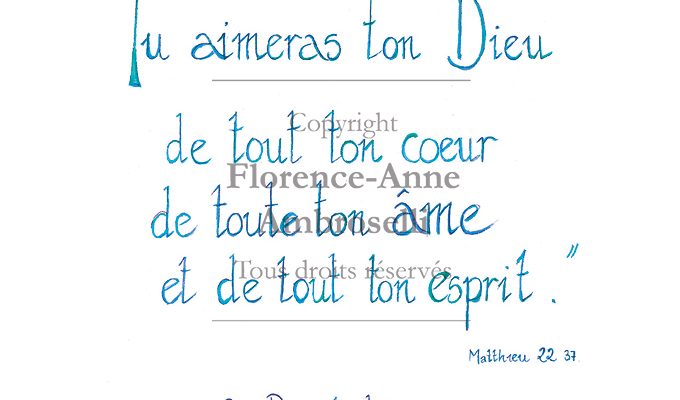 Tu aimeras ton Dieu
Copyright
de tout ton coeur
Florence-Anne
de toute ton âme
Ambroselli
Tous droits réservés
et de tout ton esprit."
Matthieu 22 37